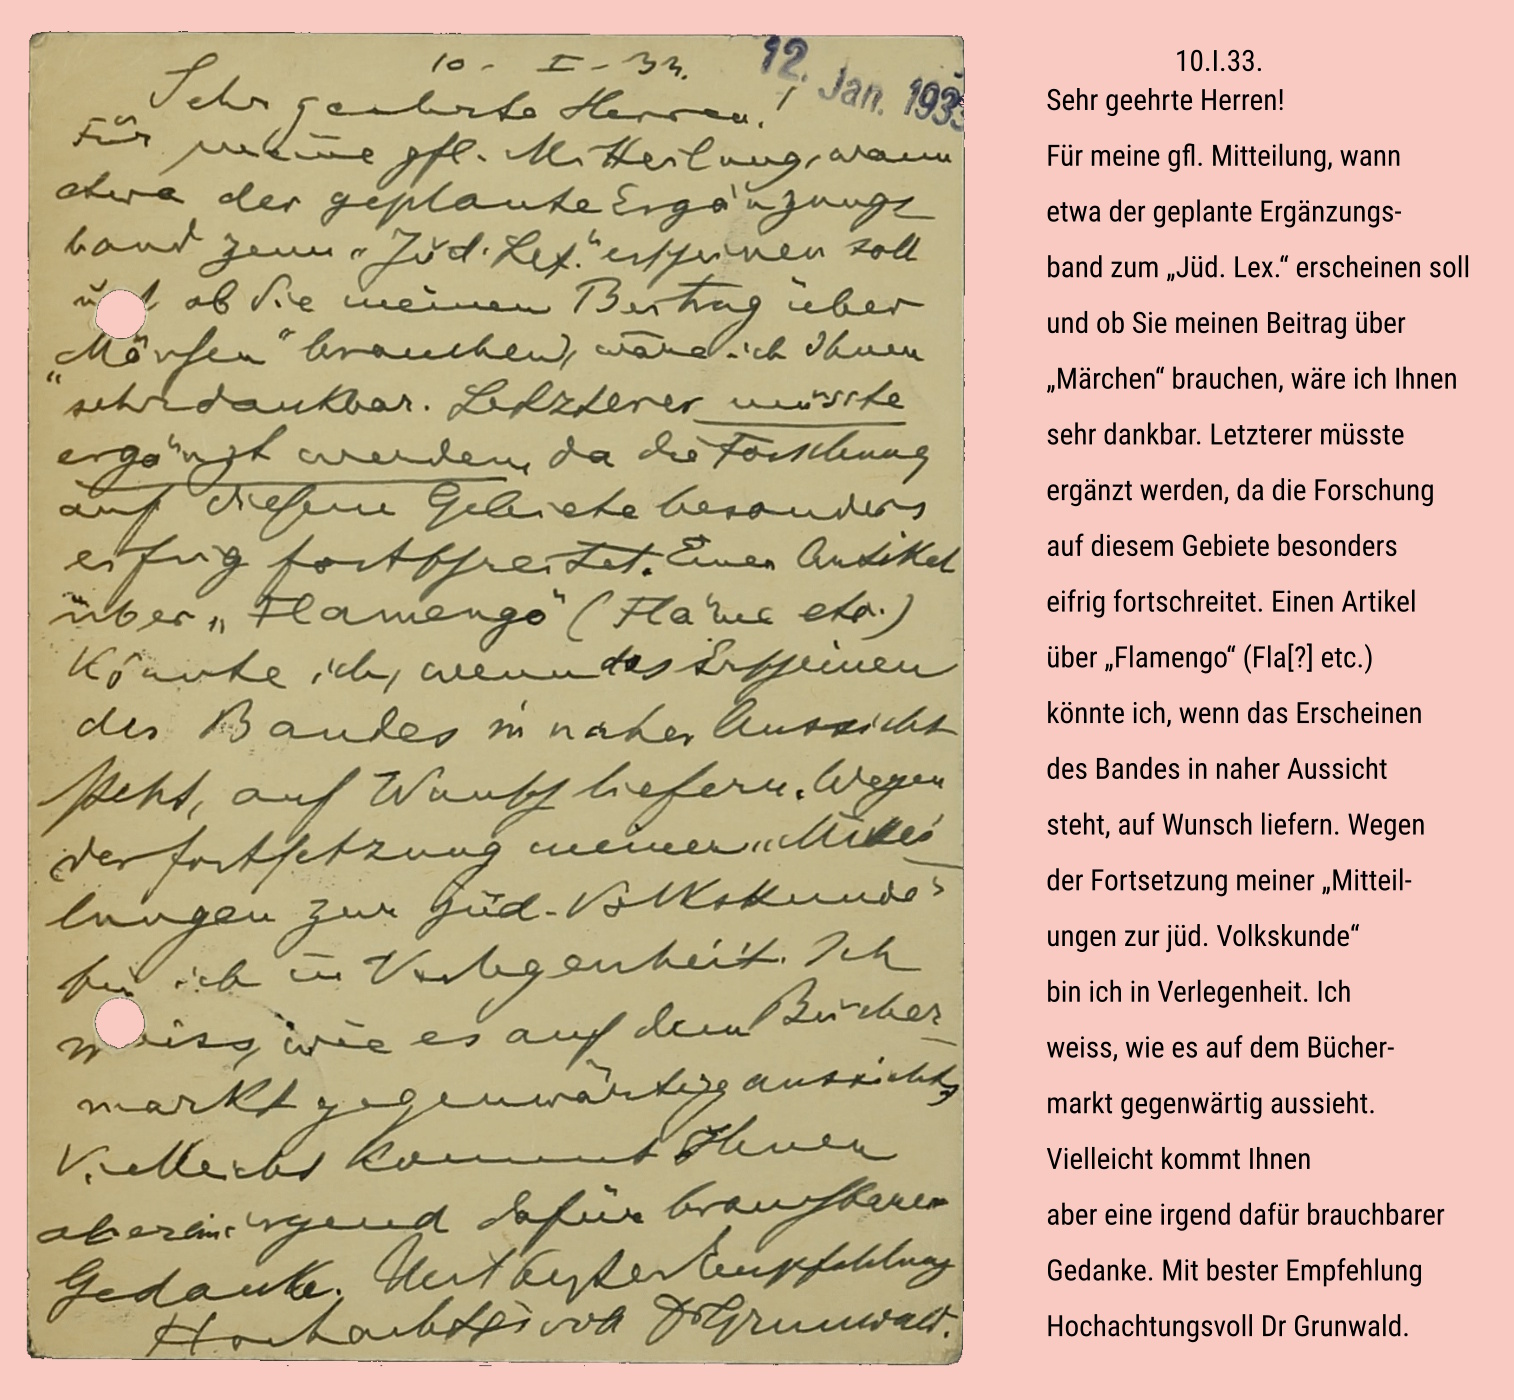 10-I-33.
12. Jan. 1933
Sehr geehrte Herren!
Für meine gfl. Mitteilung, wann
etwa der geplante Ergänzungs
band zum „Jüd. Lex.“ erscheinen soll
und ob Sie meinen Beitrag über
„Märchen“ brauchen, wäre ich Ihnen
sehr dankbar. Letzterer müsste
ergänzt werden, da die Forschung
auf diesem Gebiete besonders
eifrig fortschreitet. Einen Artikel
über „Flamengo“ (Fläme etc.)
könnte ich, wenn das Erscheinen
des Bandes in naher Aussicht
steht, auf Wunsch liefern. Wegen
der Fortsetzung meiner „Mittei-
lungen zur jüd. Volkskunde“
bin ich in Verlegenheit. Ich
weiss, wie es auf dem Bücher-
markt gegenwärtig aussieht,
Vielleicht kommt Ihnen
aber ein irgend dafür brauchbarer
Gedanke. Mit bester Empfehlung
Hochachtungsvoll Dr Grunwald.
10.I.33.
Sehr geehrte Herren!
Für meine gfl. Mitteilung, wann
etwa der geplante Ergänzungs-
band zum „Jüd. Lex.“ erscheinen soll
und ob Sie meinen Beitrag über
„Märchen“ brauchen, wäre ich Ihnen
sehr dankbar. Letzterer müsste
ergänzt werden, da die Forschung
auf diesem Gebiete besonders
eifrig fortschreitet. Einen Artikel
über „Flamengo“ (Fla[?] etc.)
könnte ich, wenn das Erscheinen
des Bandes in naher Aussicht
steht, auf Wunsch liefern. Wegen
der Fortsetzung meiner „Mitteil-
ungen zur jüd. Volkskunde“
bin ich in Verlegenheit. Ich
weiss, wie es auf dem Bücher-
markt gegenwärtig aussieht.
Vielleicht kommt Ihnen
aber eine irgend dafür brauchbarer
Gedanke. Mit bester Empfehlung
Hochachtungsvoll Dr Grunwald.